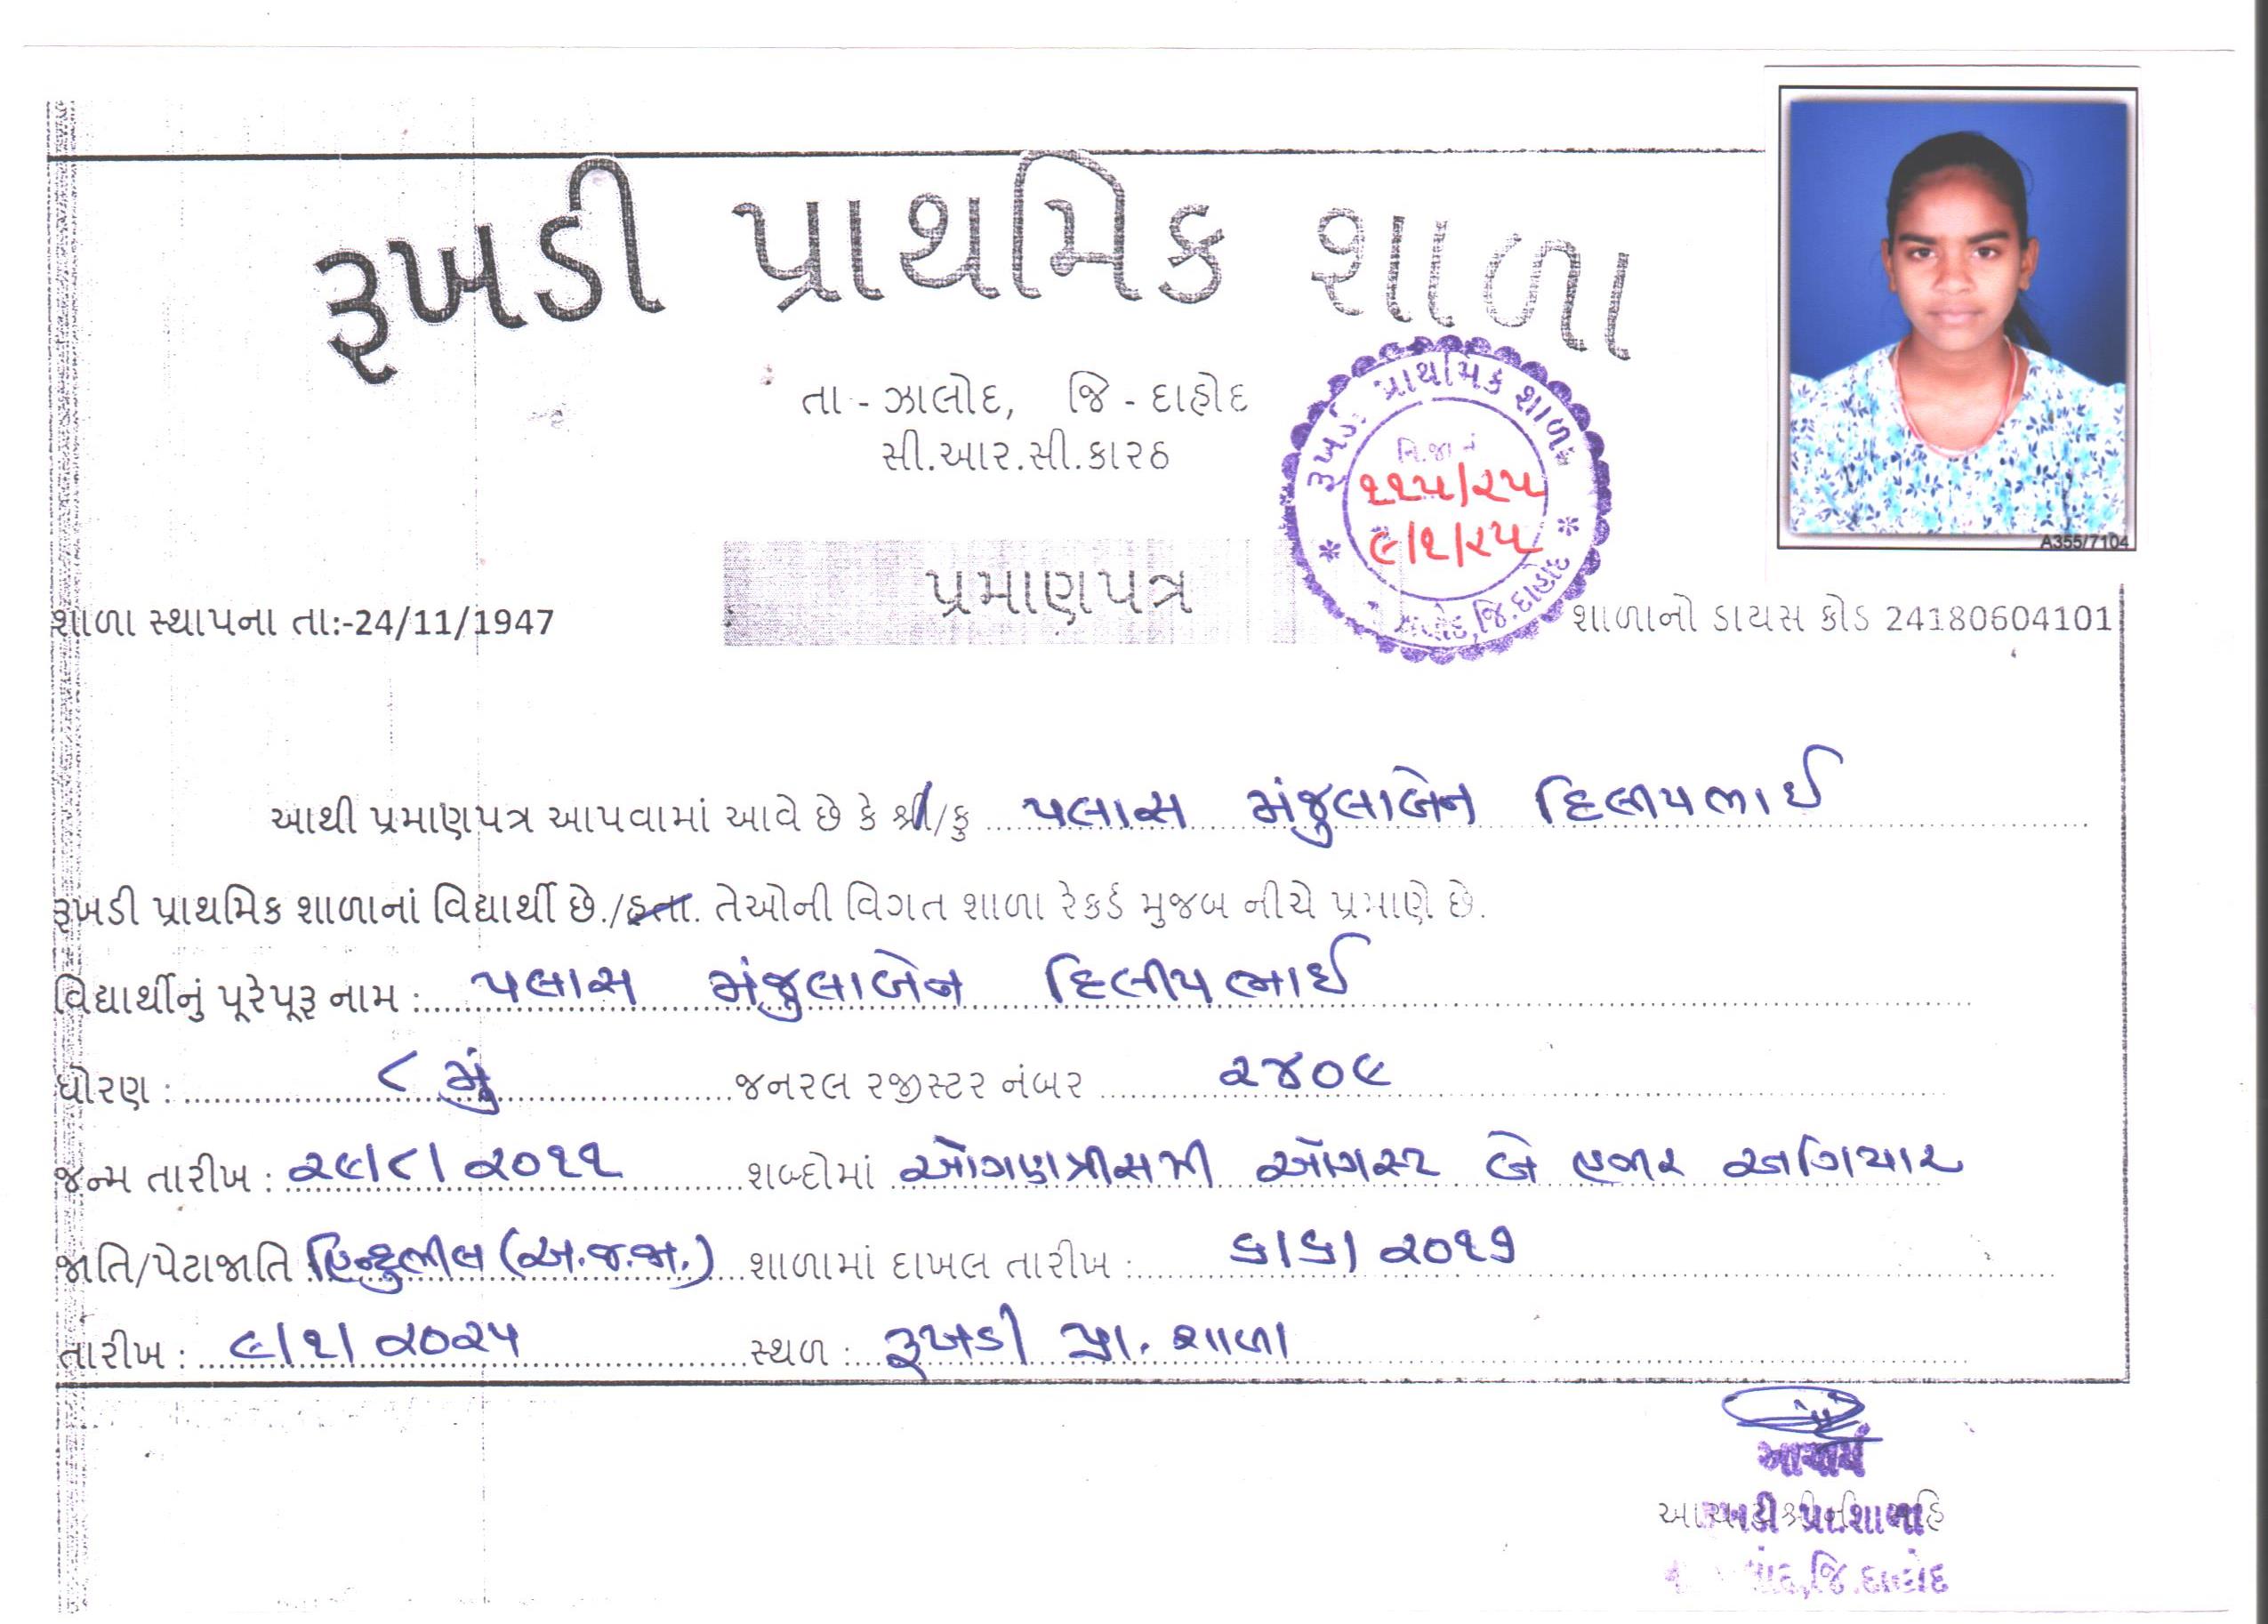 રૂખડી પ્રાથમિક શાળા
તા - ઝાલોદ, જિ - દાહોદ
સી.આર.સી.કારઠ
રૂખડી પ્રાથમિક શાળા
નિ.જા નં
૧૧૫/૨૫
૯/૧/૨૫
જિ.દાહોદ
A355/7104
પ્રમાણપત્ર
શાળા સ્થાપના તા:-24/11/1947
શાળાનો ડાયસ કોડ 24180604101
આથી પ્રમાણપત્ર આપવામાં આવે છે કે શ્રી/કુ પલાસ મંજુલાબેન દિલીપભાઈ
રૂખડી પ્રાથમિક શાળાનાં વિદ્યાર્થી છે./હતા. તેઓની વિગત શાળા રેકર્ડ મુજબ નીચે પ્રમાણે છે.
વિદ્યાર્થીનું પૂરેપૂરૂ નામ : પલાસ મંજુલાબેન દિલીપભાઈ
ધોરણ : ૮ મું જનરલ રજીસ્ટર નંબર ૨૪૦૯
જન્મ તારીખ : ૨૯/૮/૨૦૧૧ શબ્દોમાં ઓગણત્રીસમી ઓગસ્ટ બે હજાર અગિયાર
જાતિ/પેટાજાતિ હિન્દુભીલ (અ.જ.જા.) શાળામાં દાખલ તારીખ : ૬/૬/૨૦૧૭
તારીખ : ૯/૧/૨૦૨૫ સ્થળ : રૂખડી પ્રા. શાળા
આચાર્ય
રૂખડી પ્રા.શાળા
જિ.દાહોદ